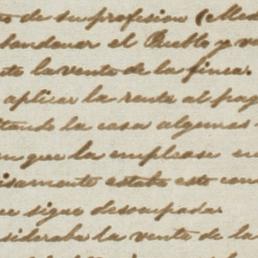 to de su profesion (Med
abandonar el Pueblo y v
to la venta de la finca.
aplicar la renta al pag
tando la casa algunas
en que la emplease en
isamente estaba este con
ue sigue desocupada
nsideraba la venta de la